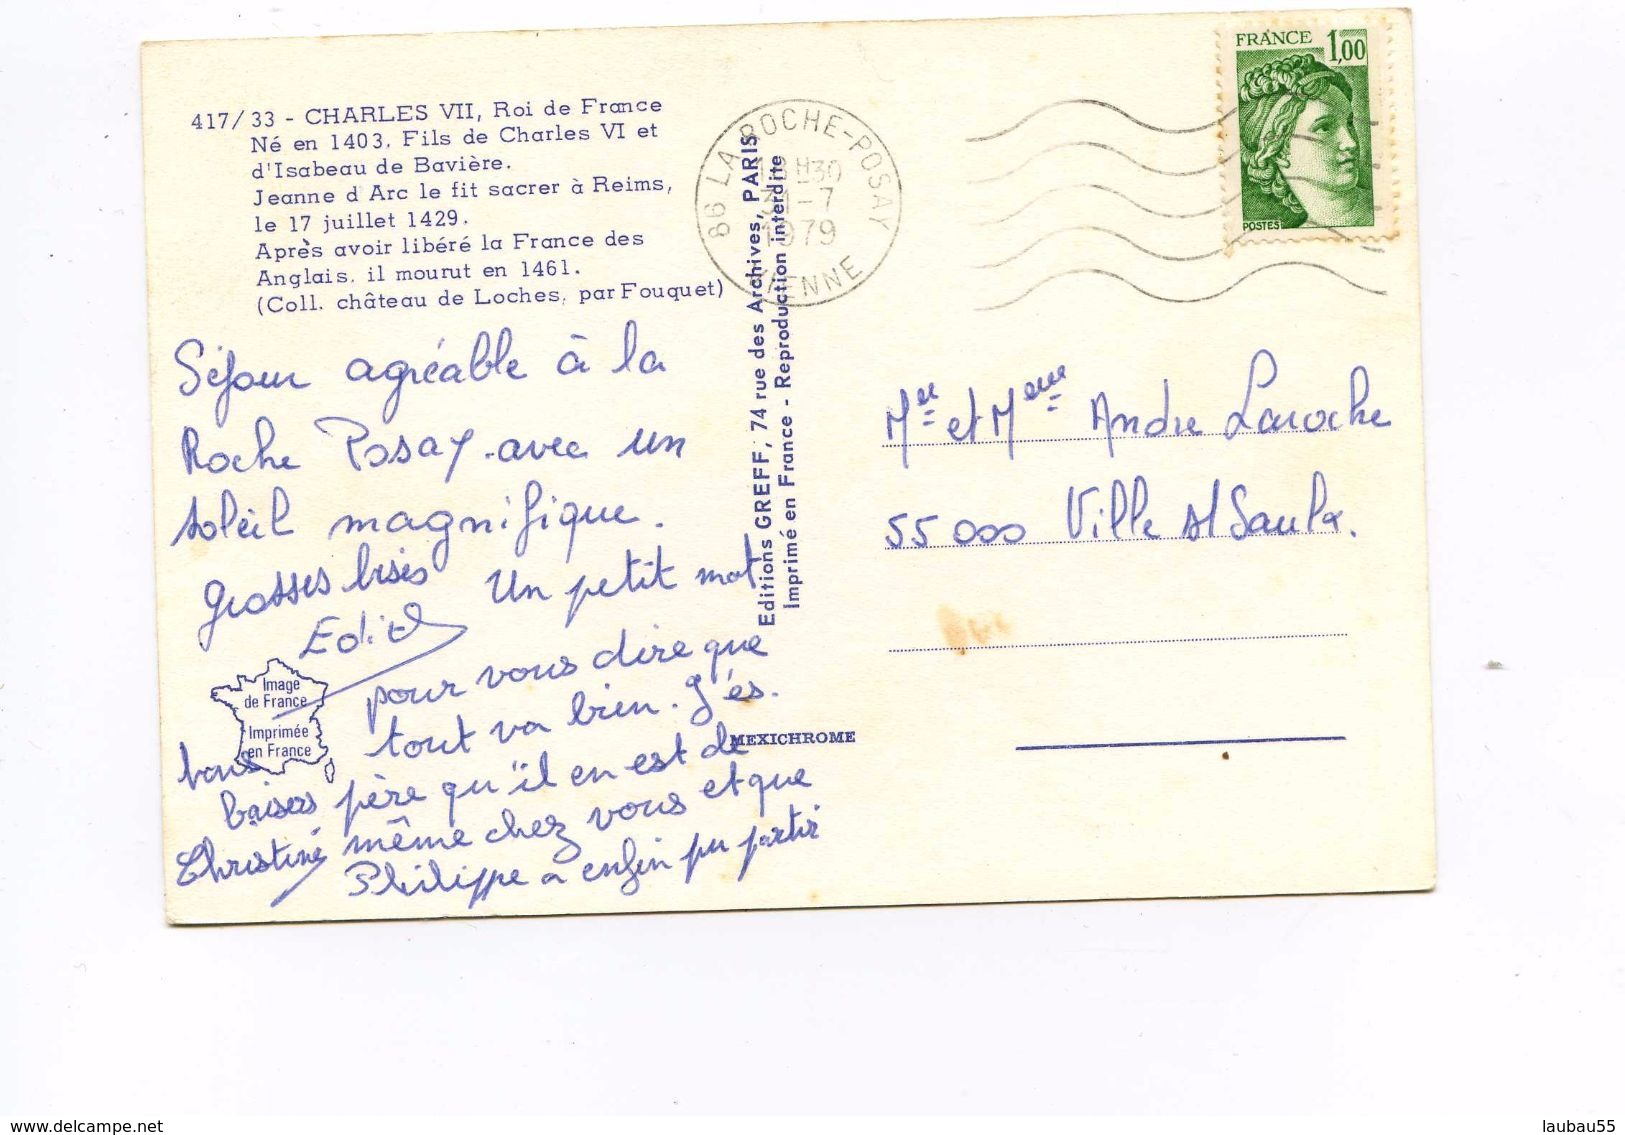 417/33 - CHARLES VII, Roi de France
Né en 1403. Fils de Charles VI et
d'Isabeau de Bavière.
Jeanne d Arc le fit sacrer à Reims,
le 17 juillet 1429.
Après avoir libéré la France des
Anglais, il mourut en 1461.
(Coll. château de Loches, par Fouquet)
86 LA ROCHE-POSAY
18H30
31-7
1979
VIENNE
FRANCE 1,00
POSTES
Editions GREFF, 74 rue des Archives, PARIS
Imprimé en France - Reproduction interdite
Séjour agréable à la
Roche Posay avec un
soleil magnifique.
Grosses bises
Edith
Un petit mot
pour vous dire que
tout va bien. J'es-
père qu'il en est de
même chez vous et que
Philippe a enfin pu partir
bons
baisers
Christine
Image
de France
Imprimée
en France
MEXICHROME
Mr et Mme Andre Laroche
55000 Ville s/ Saulx.
www.delcampe.net
laubau55